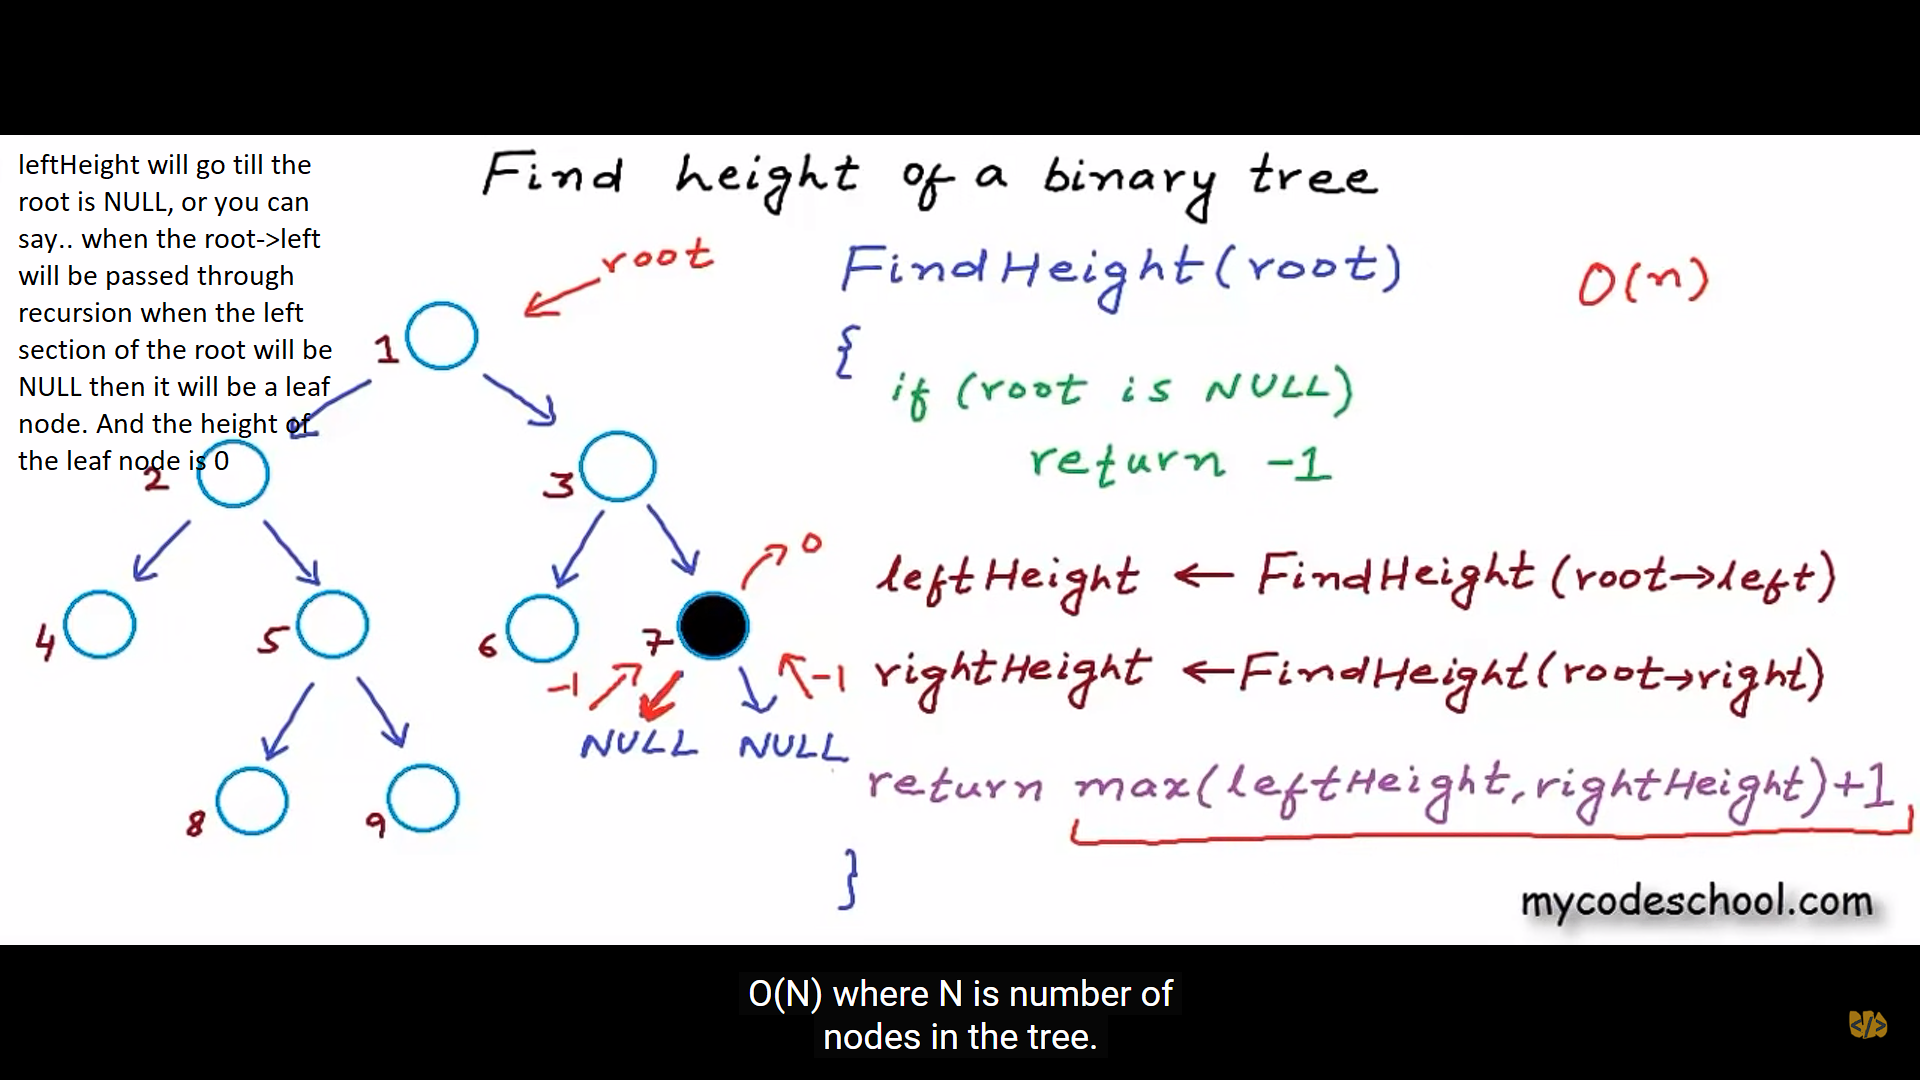 leftHeight will go till the
root is NULL, or you can
say.. when the root->left
will be passed through
recursion when the left
section of the root will be
NULL then it will be a leaf
node. And the height of
the leaf node is 0
Find height of a binary tree
root
1
2
3
4
5
6
7
8
9
0
-1
-1
NULL NULL
FindHeight(root)
O(n)
{
if (root is NULL)
return -1
leftHeight ← FindHeight(root→left)
rightHeight ← FindHeight(root→right)
return max(leftHeight, rightHeight)+1
}
mycodeschool.com
O(N) where N is number of
nodes in the tree.